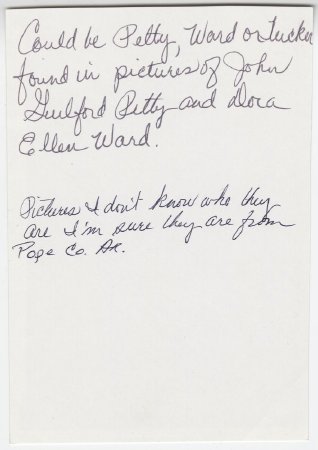 Could be Petty, Ward or Tucker
found in pictures of John
Guilford Petty and Dora
Ellen Ward.
Pictures I don't know who they
are I'm sure they are from
Pope Co. Ar.